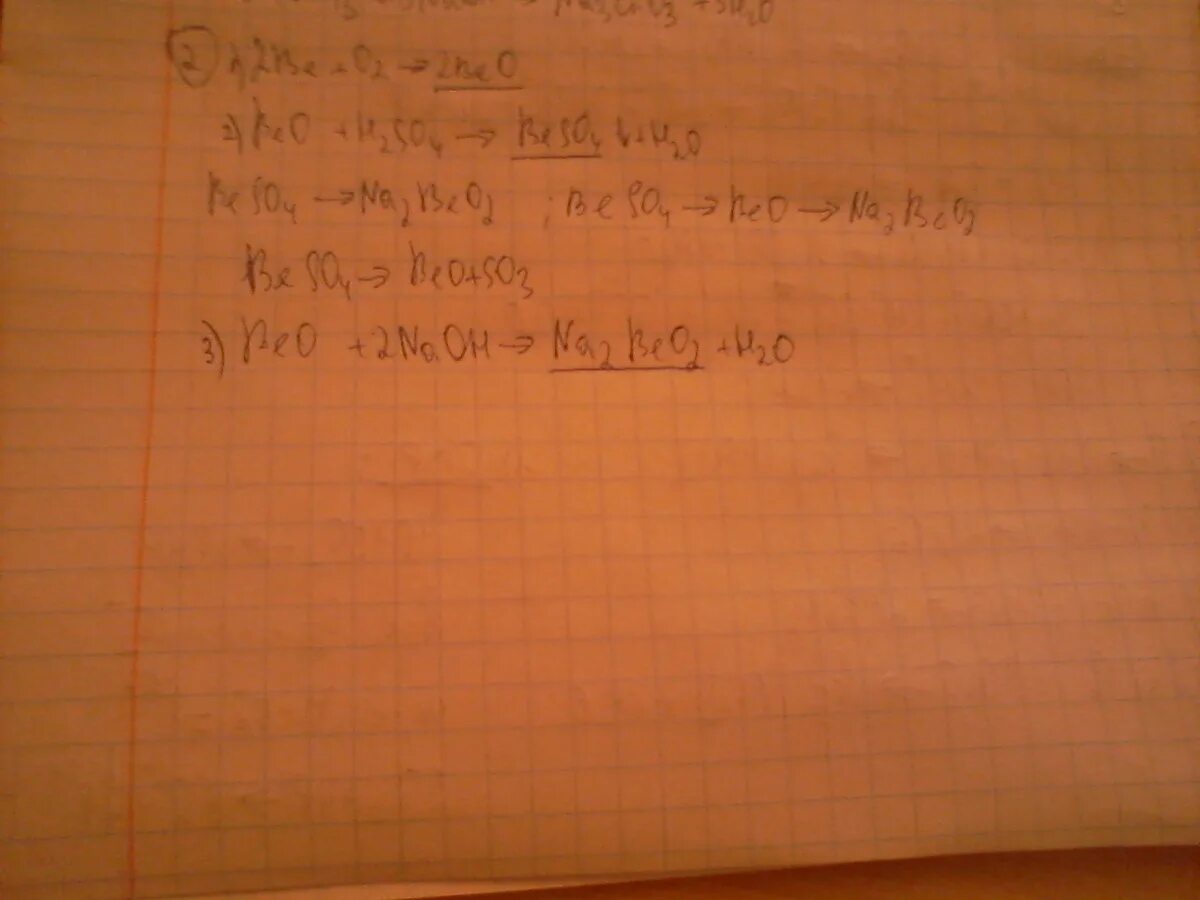 ② 1) 2Be + O₂ → 2BeO
2) BeO + H₂SO₄ → BeSO₄ + H₂O
BeSO₄ → Na₂BeO₂ ; BeSO₄ → BeO → Na₂BeO₂
BeSO₄ → BeO+SO₃
3) BeO + 2NaOH → Na₂BeO₂ + H₂O